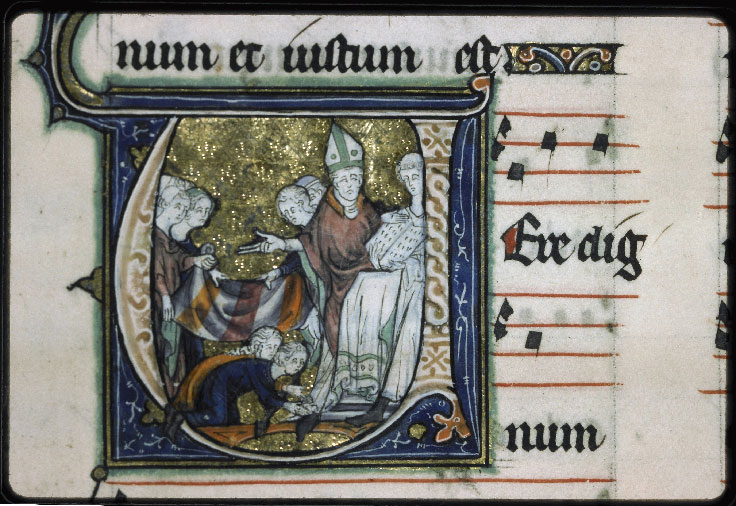 num et iustum est
Ere dig
num